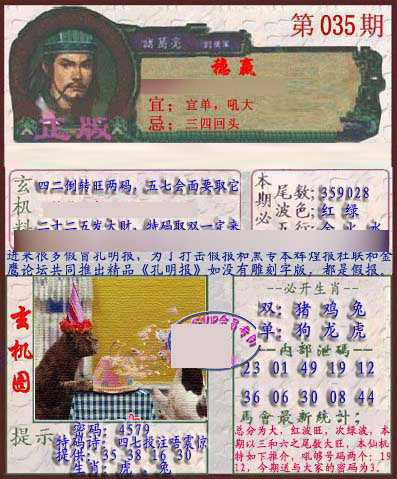 第035期
諸葛亮
稳赢
宜；宜单，吼大
忌；三四回头
正版
玄机
四二倒转旺两码，五七会面要取它
二十二五发大财，特码取双一定来
本期必
尾数;359028
波色;红 绿
进来很多假冒孔明报，为了打击假报和黑专本辉煌报社联和金
鹰论坛共同推出精品《孔明报》如没有雕刻字版，都是假报。
玄机图
--必开生肖--
双:猪 鸡 兔
单:狗 龙 虎
--内部泄码--
23 01 49 19 12
36 06 30 08 44
馬會最新統計:
总分为大，红波旺，次绿波，本
期以三和六之尾数大旺，本仙机
特如下推介，吼够号码两个：19
12,今期送与大家的密码为3.
提示
密码：4579
特码诗：四七投注唔震惊
提供：35 38 16 30
生肖：虎、兔